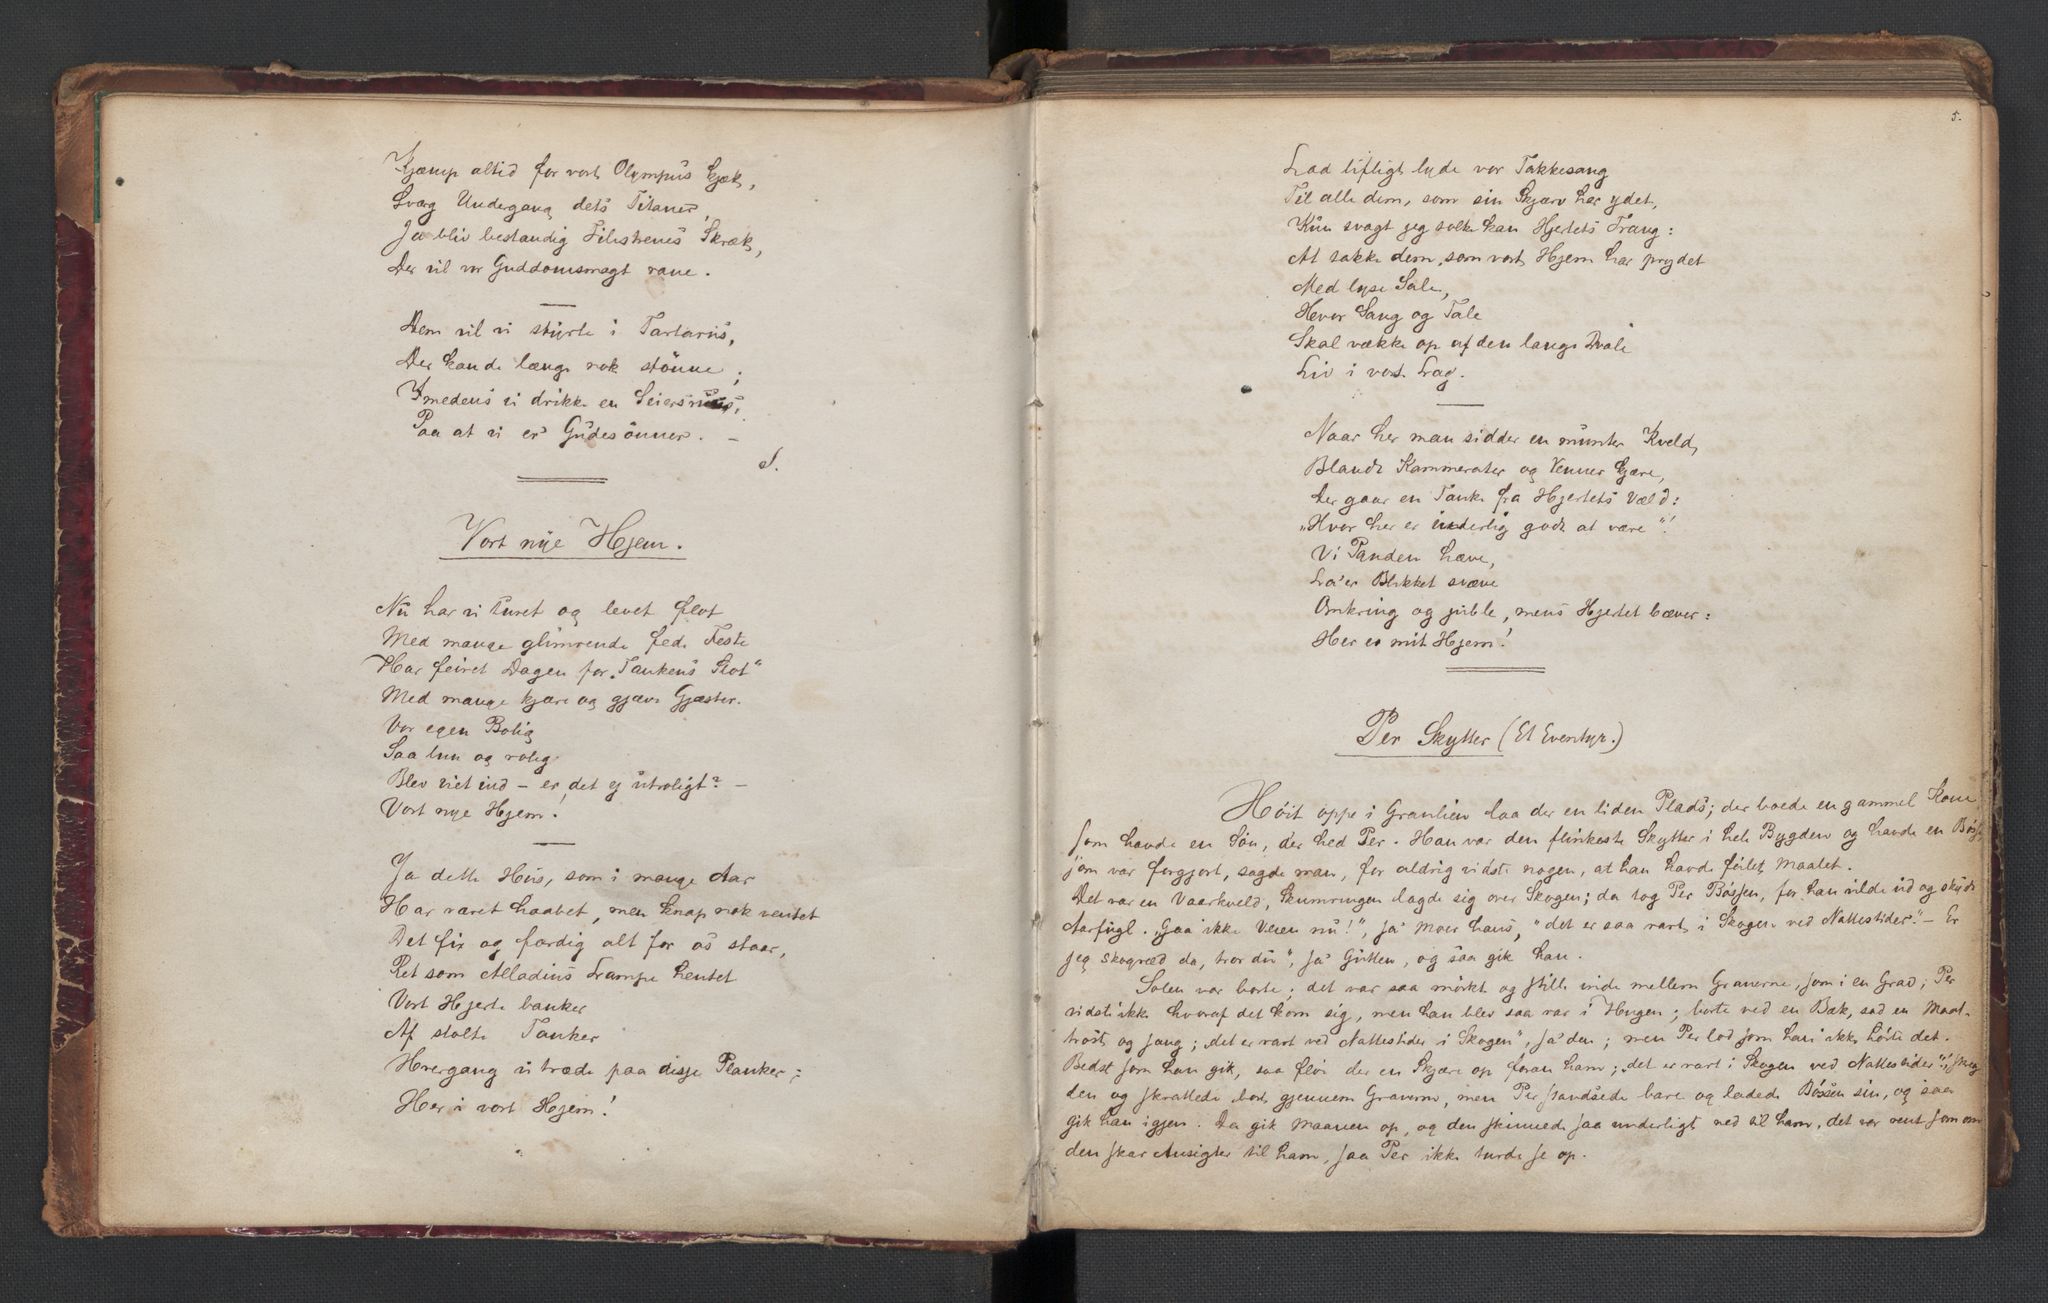 Kjæmp altid for vort Olympus kjæk,
Sværg Undergang dets Titaner,
Ja bliv bestandig Filistrenes Skræk,
Der vil vor Guddomsmagt rane.
Dem vil vi styrte i Tartarus,
Der kan de længe nok stönne;
Imedens vi drikke en Seiersruus,
Paa at vi er Gudesönner. –
S.
Vort nye Hjem.
Nu har vi turet og levet flot
Med mange glimrende fede Feste
Har feiret Dagen for „Tankens Slot“
Med mange kjære og gjæve Gjæster.
Vor egen Bolig
Saa lun og rolig
Blev viet ind – er det ej utroligt? –
Vort nye Hjem!
Ja dette Hus, som i mange Aar
Har været haabet, men knap nok ventet
Det fix og færdig alt for os staar,
Ret som Alladins Lampe hentet
Vort Hjerte banker
Af stolte Tanker
Hvergang vi træde paa disse Planker:
Her i vort Hjem!
5.
Lad lifligt lyde vor Takkesang
Til alle dem, som sin Skjærv har ydet,
Kun svagt jeg tolke kan Hjertets Trang:
At takke dem, som vort Hjem har prydet
Med lyse Sale,
Hvor Sang og Tale
Skal vække op af den lange Dvale
Liv i vort Lag.
Naar her man sidder en munter Kveld,
Blandt Kammerater og Venner kjære,
Der gaar en Tanke fra Hjertets Væld:
„Hvor her er inderlig godt at være“!
Vi Panden hæve,
La'er Blikket svæve
Omkring og juble, mens Hjertet bæver:
Her er mit Hjem!
Per Skytter (Et Eventyr.)
Höit oppe i Granlien laa der en liden Plads; der boede en gammel Kone
som havde en Sön, der hed Per. Han var den flinkeste Skytter i hele Bygden og havde en Bösse,
som var forgjort, sagde man, for aldrig vidste nogen, at han havde feilet Maalet.
Det var en Vaarkveld, Skumringen lagde sig over Skogen; da tog Per Bössen, for han vilde ud og skyde
Aarfugl. „Gaa ikke Veien nu!“, sa' Moer hans, „det er saa rart i Skogen ved Nattestider.“ – Er
jeg skogræd da, tror du“, sa' Gutten, og saa gik han.
Solen var borte; det var saa mörkt og stille inde mellem Granerne, som i en Grav; Per
vidste ikke hvoraf det kom sig, men han blev saa rar i Hugen; borte ved en Bæk, sad en Maal-
trost og sang; „det er rart ved Nattestider i Skogen“, sa' den; men Per lod som han ikke hörte det.
Bedst som han gik, saa flöi der en Skjære op foran ham; „det er rart i Skogen ved Nattestider“!, skreg
den og skrattede bort gjennem Granerne, men Per standsede bare og ladede Bössen sin, og saa
gik han igjen. Da gik Maanen op, og den skinnede saa underligt ned til ham, det var rent som om
den skar Ansigter til ham, saa Per ikke turde se op.